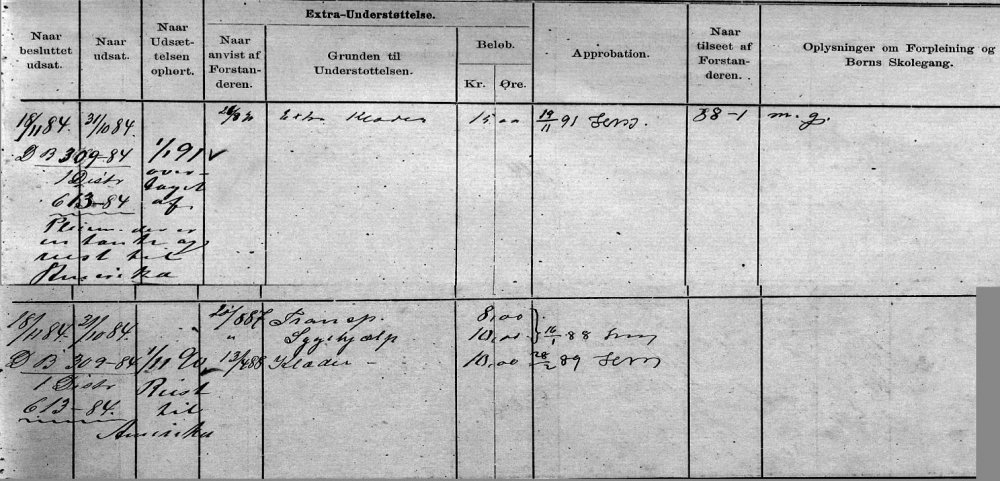 Naar besluttet udsat.
Naar udsat.
Naar Udsæt-
telsen
ophørt.
Extra-Understøttelse.
Naar
anvist af
Forstan-
deren.
Grunden til
Understøttelsen.
Beløb.
Kr. Øre.
Approbation.
Naar
tilseet af
Forstan-
deren.
Oplysninger om Forpleining og
Børns Skolegang.
18/11 84. 31/10 84. Extr Klæder 15 00 19/11 91 88-1 m. g.
D B 309-84 1/1 91
1 Distr over-
taget
613-84 af
Pleiem. der er
en tante og
reist til
Amerika
18/11 84. 31/10 84. 887 Transp. 8,00
" Sygehjælp 10,00 16/1 88
D B 309-84 1/11 90 13/4 88 Klæder - 10,00 28/2 89
1 Distr Reist
613-84. til
Amerika